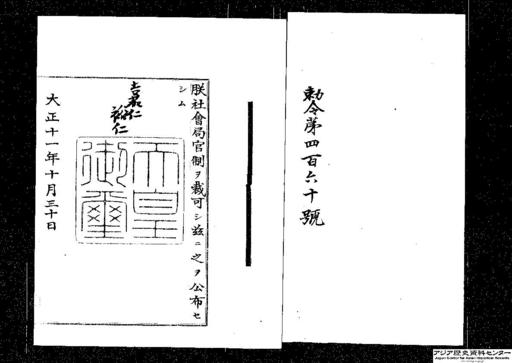 勅令第四百六十號
朕社會局官制ヲ裁可シ茲ニ之ヲ公布セ
シム
嘉仁
裕仁
天皇
御璽
大正十一年十月三十日
アジア歴史資料センター
Japan Center for Asian Historical Records